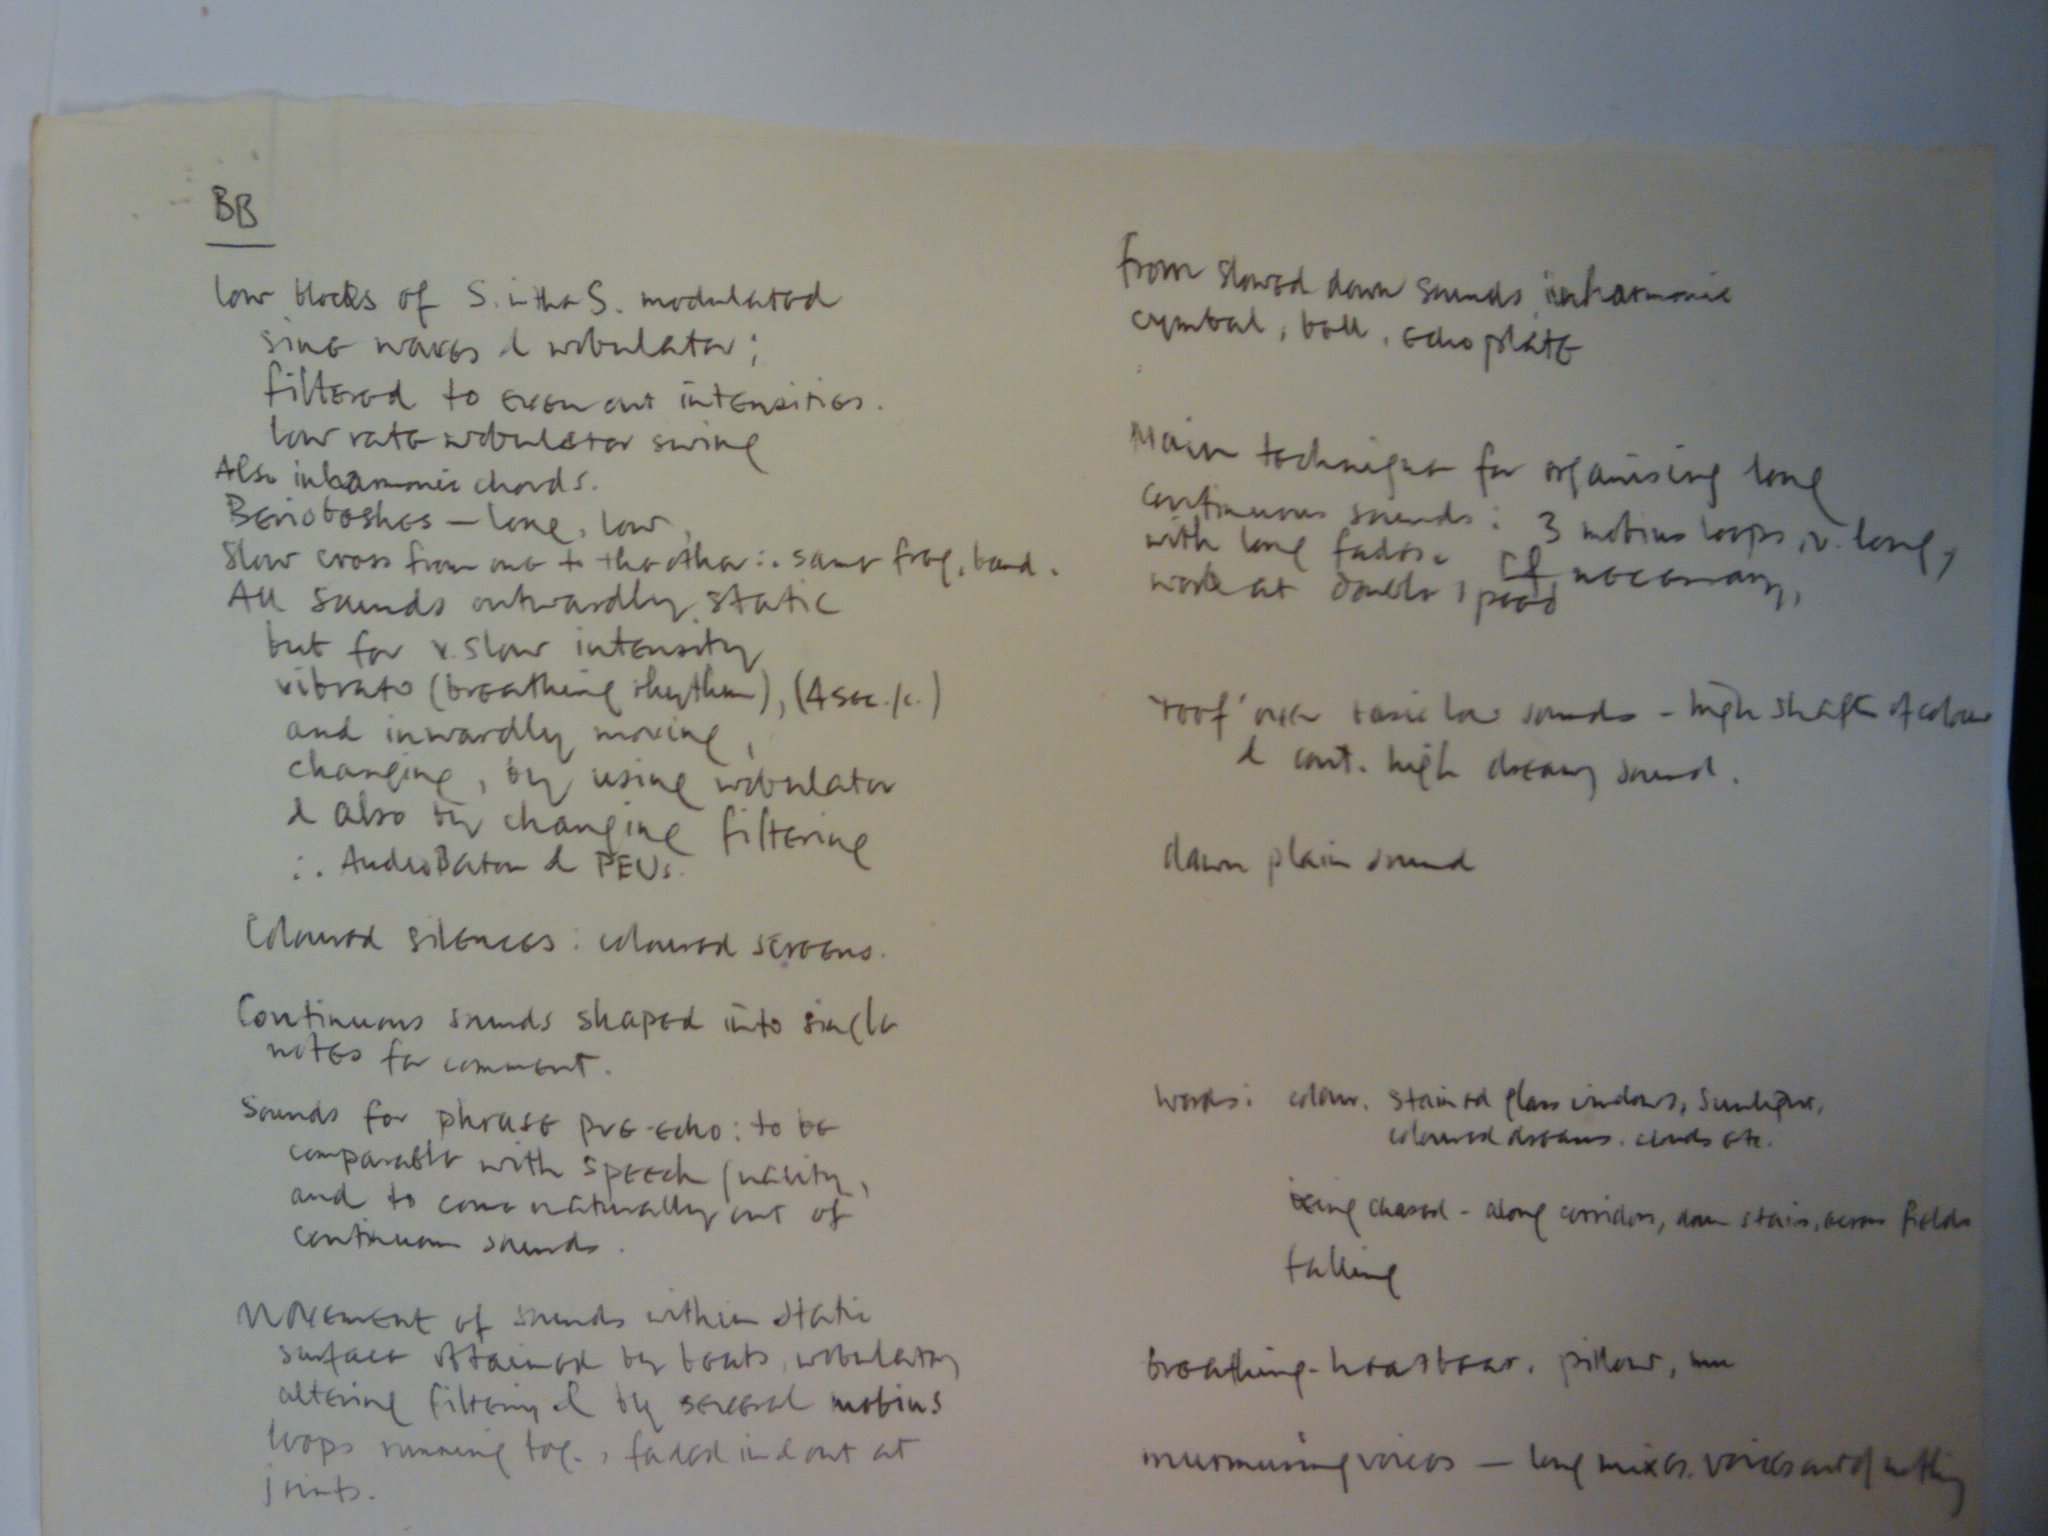 BB
low blocks of S. in the S. modulated
sine waves & wobulator;
filtered to even out intensities.
low rate wobulator swing
Also inharmonic chords.
Beriobashes — long, low,
Slow cross from one to the other ∴ same freq. band.
All sounds outwardly static
but for v. slow intensity
vibrato (breathing rhythm), (4 sec./c.)
and inwardly moving,
changing, by using wobulator
& also by changing filtering
∴ AudioBaton & PEUs.
Coloured silences: coloured screens.
Continuous sounds shaped into single
notes for comment.
Sounds for phrase pre-echo: to be
comparable with speech quality,
and to come naturally out of
continuum sounds.
Movement of sounds within static
surface attained by beats, wobulating
altering filtering & by several mobius
loops running tog., faded in & out at
joints.
from slowed down sounds, inharmonic
cymbal, bell, echo plate
Main technique for organising long
continuous sounds: 3 mobius loops, v. long,
with long fades. If necessary,
work at double speed
'roof' over basic low sounds - high shafts of colour
& cont. high dreamy sound.
dawn plain sound
words: colour. stained glass windows, sunlight,
coloured dreams. clouds etc.
being chased - along corridors, down stairs, across fields
falling
breathing - heartbeat. pillow,
murmuring voices — long mixes. voices out of nothing